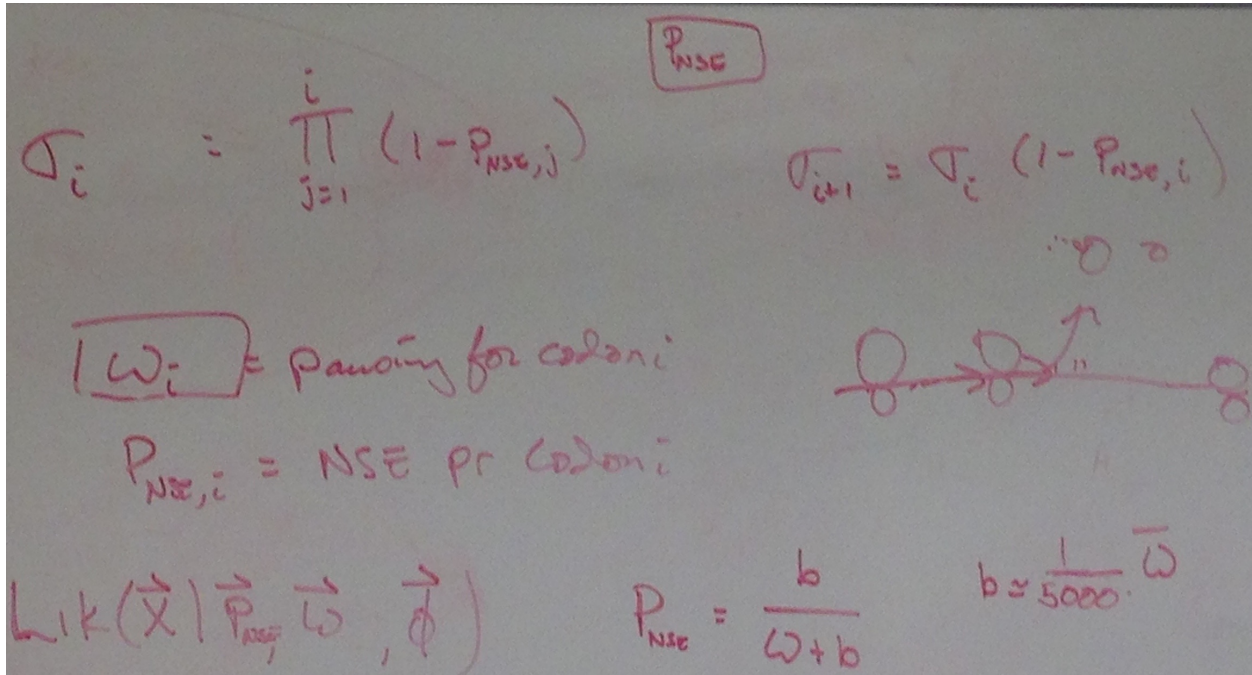 P_NSE
σ_i = ∏_{j=1}^{i} (1 - P_NSE,j)
σ_{i+1} = σ_i (1 - P_NSE,i)
ω_i = pausing for codon i
P_NSE,i = NSE pr codon i
Lik(x⃗ | P⃗_NSE, ω⃗, φ⃗)
P_NSE = b / (ω + b)
b ≃ 1/5000 · ω̄